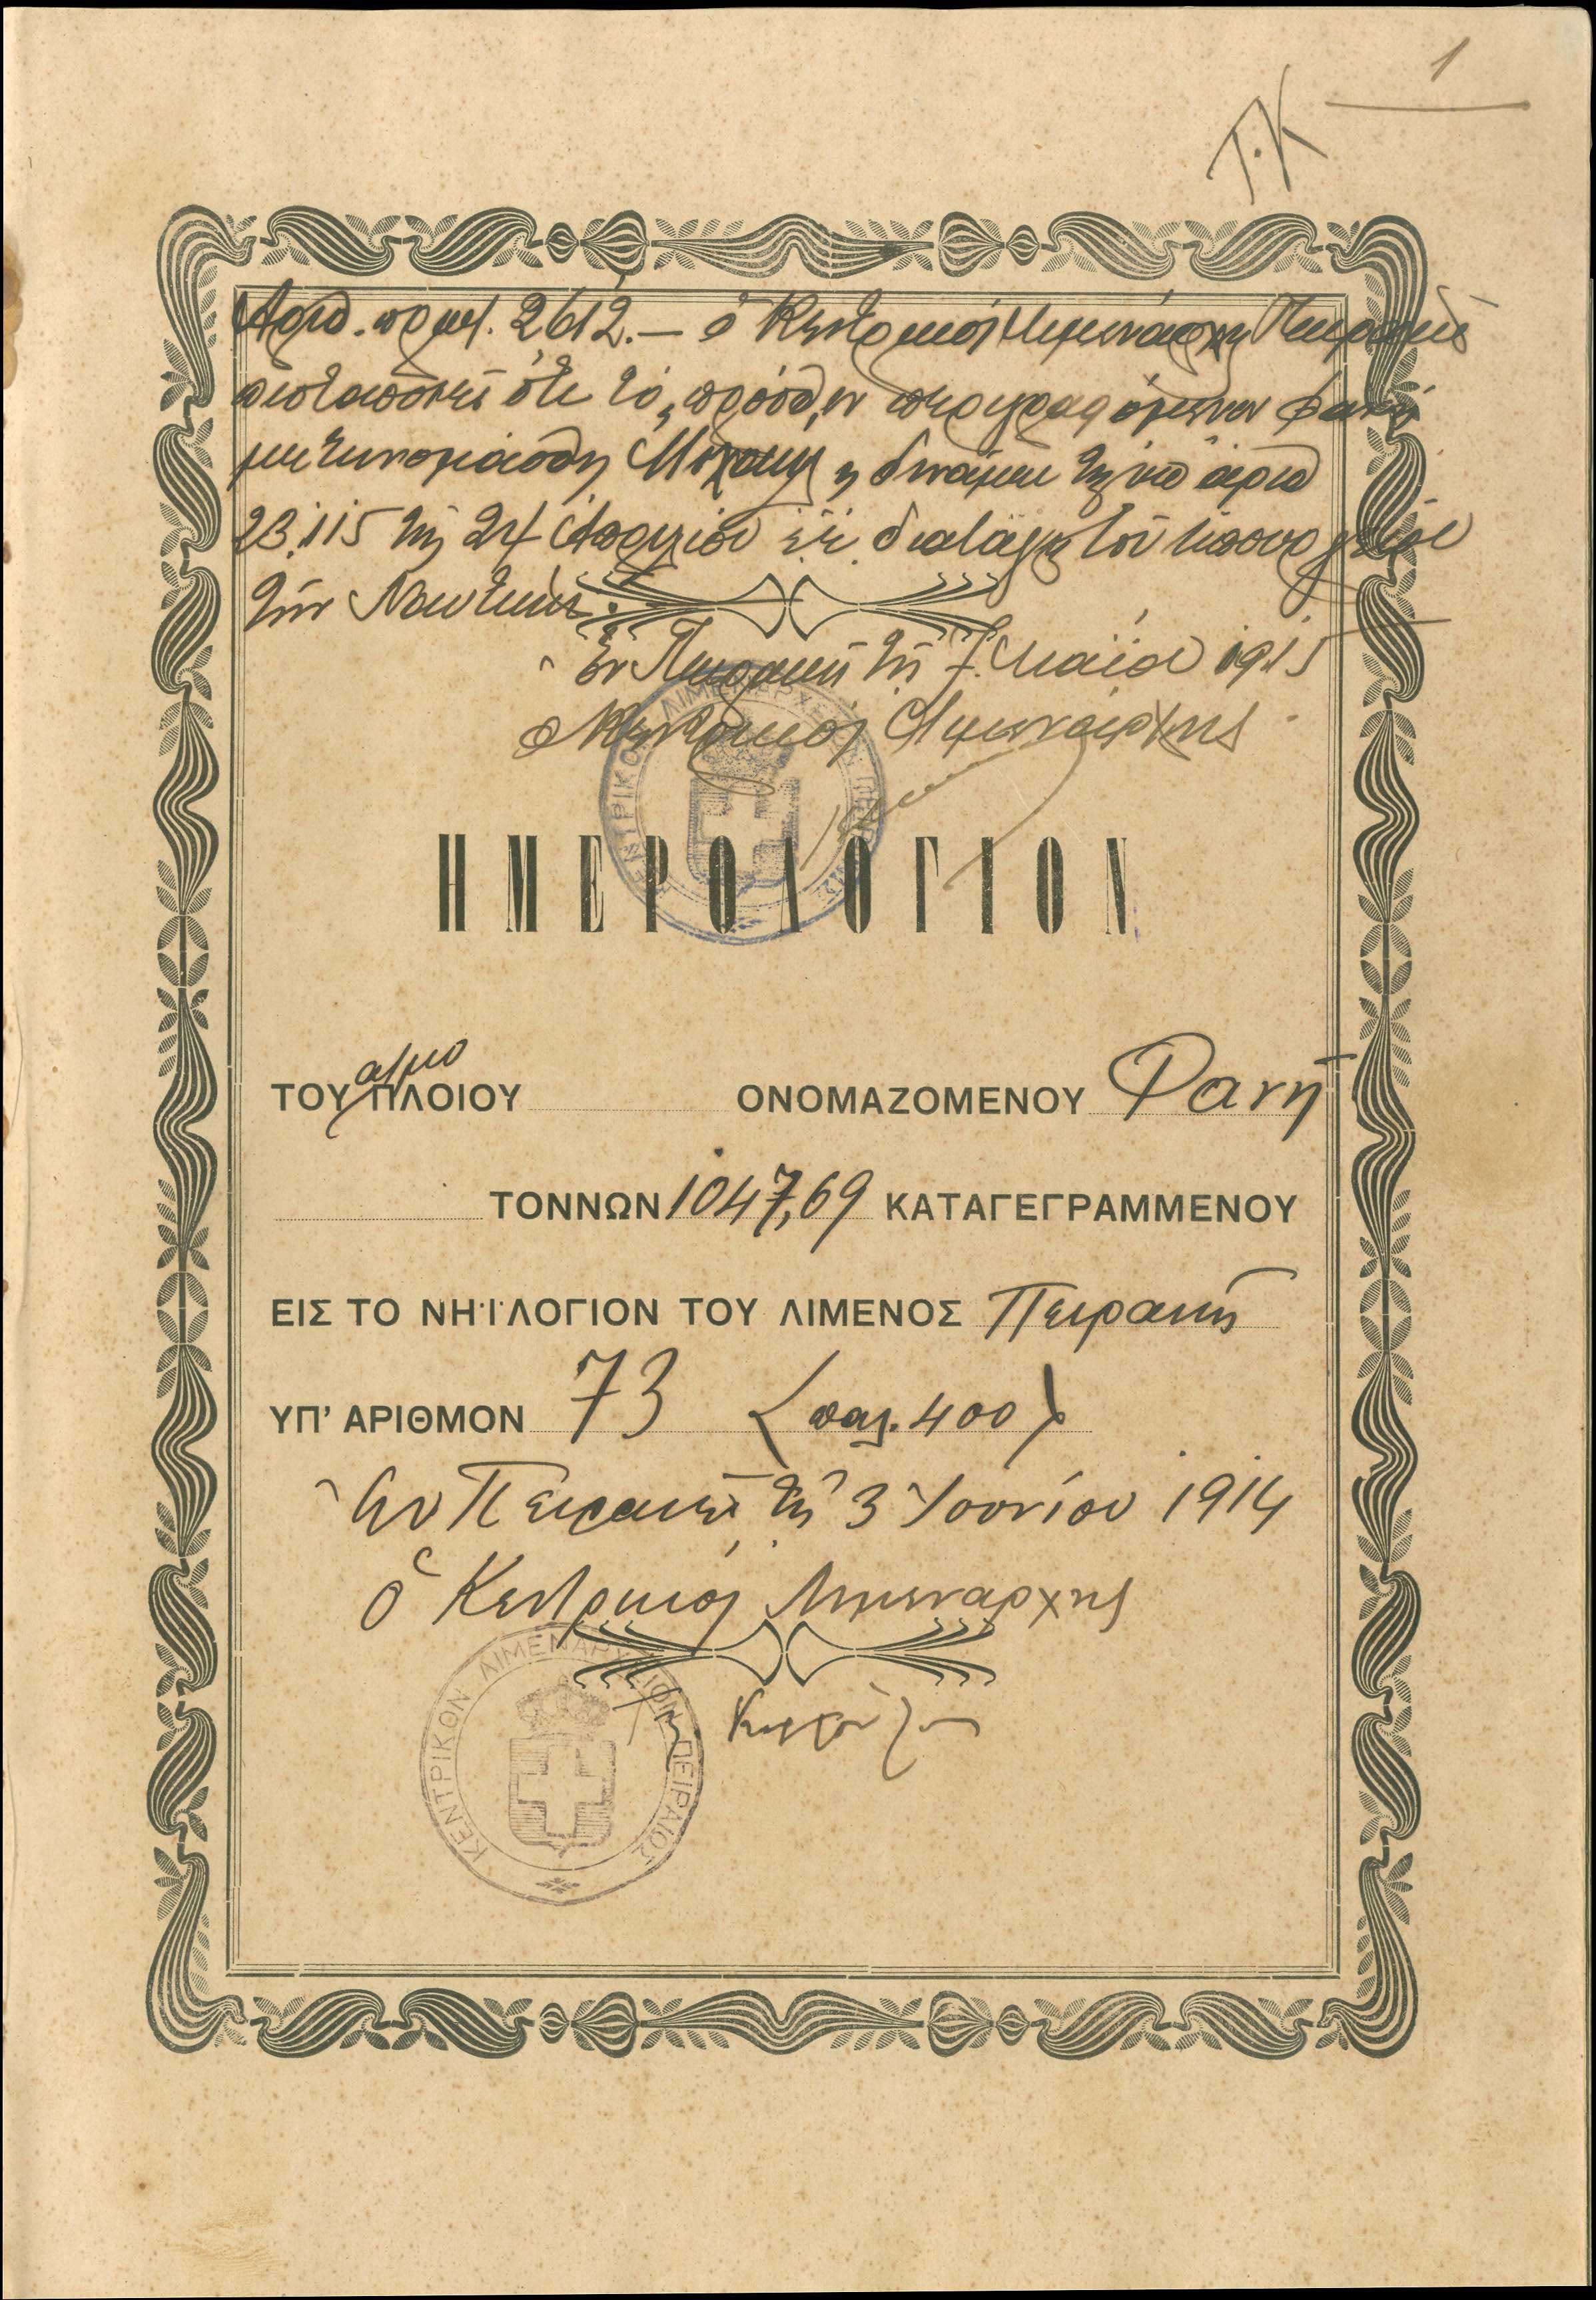 1
Τ.Κ
Αριθ. πρωτ. 2612.— ὁ Κεντρικὸς Λιμενάρχης Πειραιῶς
πιστοποιεῖ ὅτι τὸ πρόσθεν περιγραφόμενον Φανή
μετωνομάσθη δυνάμει τῆς ὑπ' ἀριθ
23.115 τῆς 24 Ἀπριλίου ἐ.ἔ. διαταγῆς τοῦ Ὑπουργείου
τῶν Ναυτικῶν.
Ἐν Πειραιεῖ τῇ 7 Μαΐου 1915
ὁ Κεντρικὸς Λιμενάρχης
ΗΜΕΡΟΛΟΓΙΟΝ
ΤΟΥ ατμο ΠΛΟΙΟΥ ΟΝΟΜΑΖΟΜΕΝΟΥ Φανή
ΤΟΝΝΩΝ 1047,69 ΚΑΤΑΓΕΓΡΑΜΜΕΝΟΥ
ΕΙΣ ΤΟ ΝΗΪΛΟΓΙΟΝ ΤΟΥ ΛΙΜΕΝΟΣ Πειραιῶς
ΥΠ' ΑΡΙΘΜΟΝ 73 (παλ. 400)
Ἐν Πειραιεῖ τῇ 3 Ἰουνίου 1914
Ὁ Κεντρικὸς Λιμενάρχης
ΚΕΝΤΡΙΚΟΝ ΛΙΜΕΝΑΡΧΕΙΟΝ ΠΕΙΡΑΙΩΣ